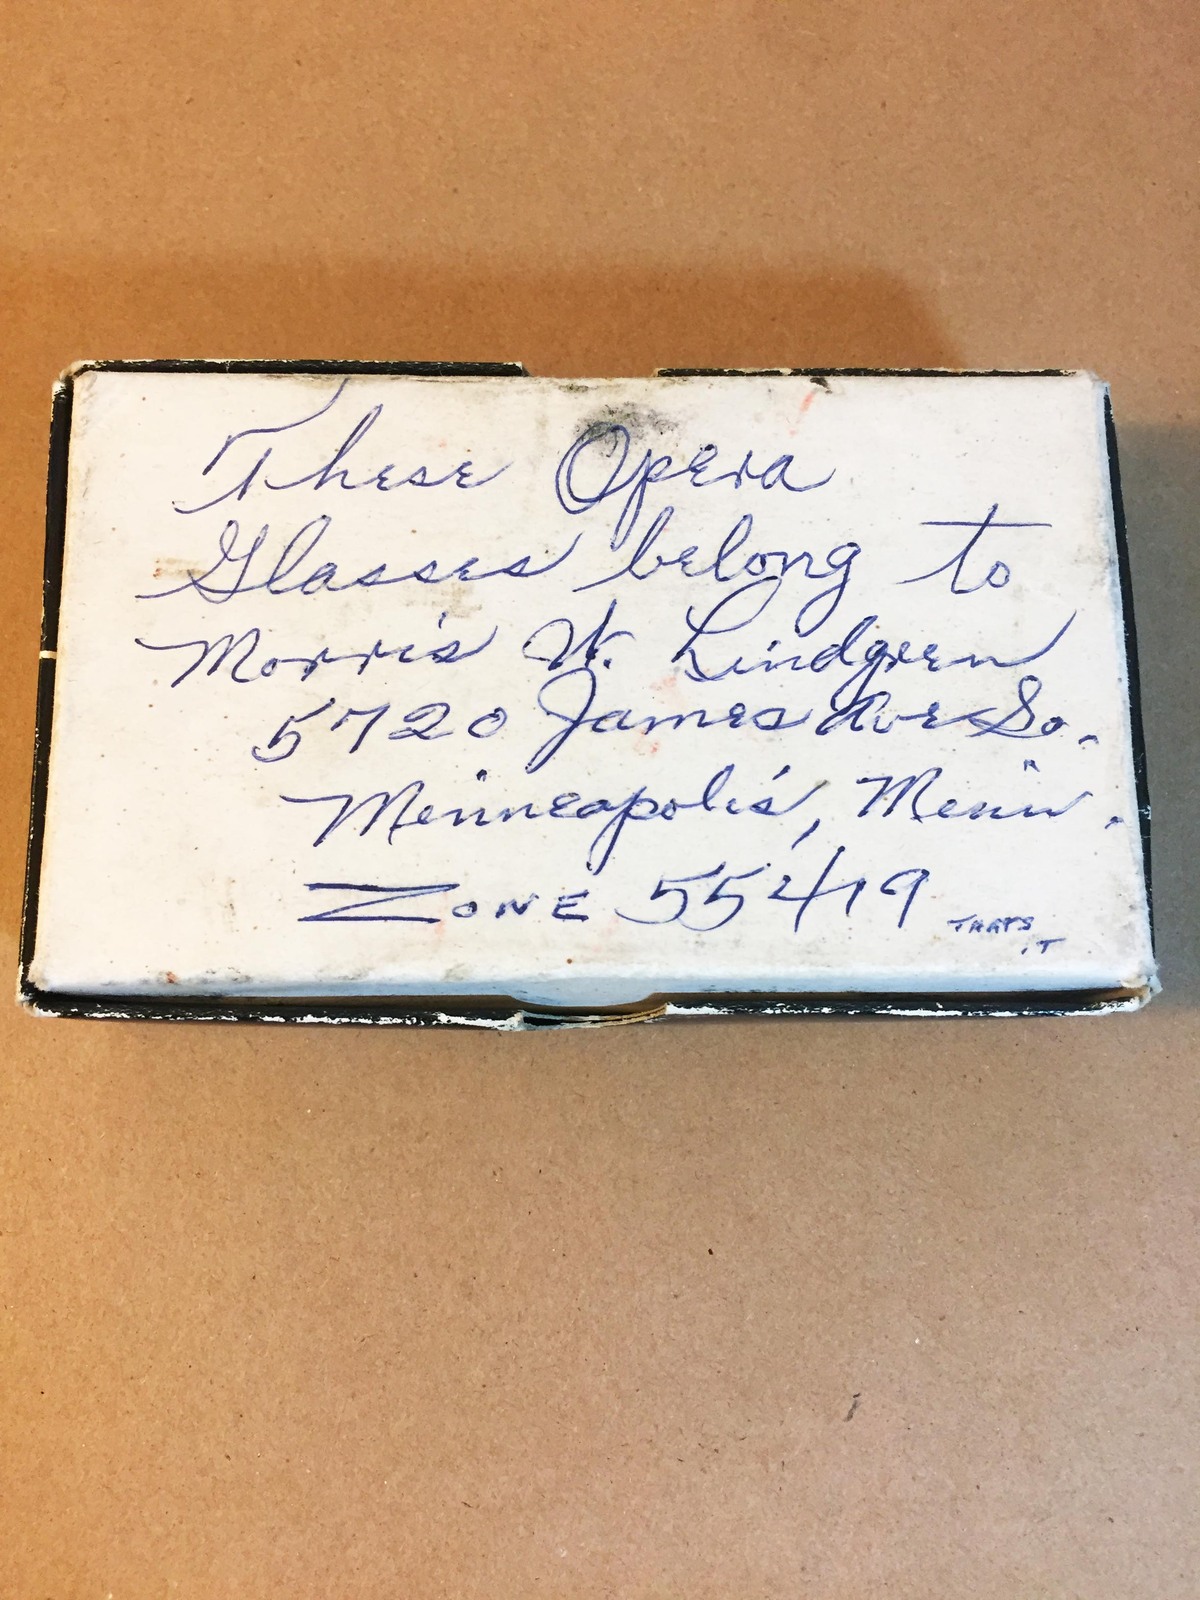 These Opera
Glasses belong to
Morris W. Lindgren
5720 James Ave So.
Minneapolis, Minn.
ZONE 55419
THAT'S
IT